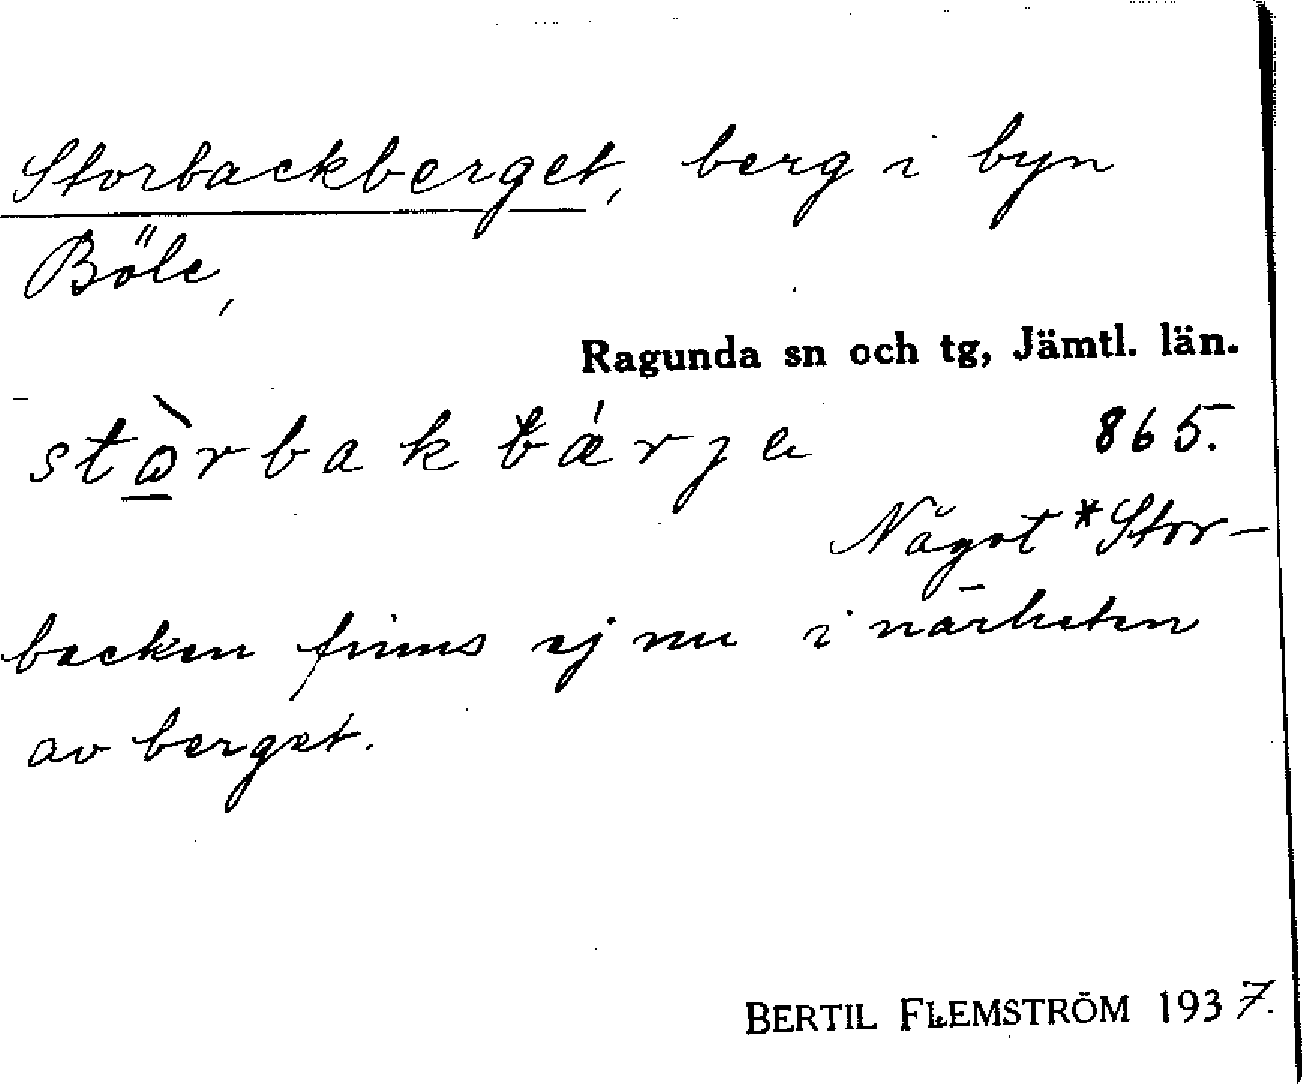 Storbackberget, berg i byn
Böle,
Ragunda sn och tg, Jämtl. län.
865.
Något *Stor-
backen finns ej nu i närheten
av berget.
BERTIL FLEMSTRÖM 1937.